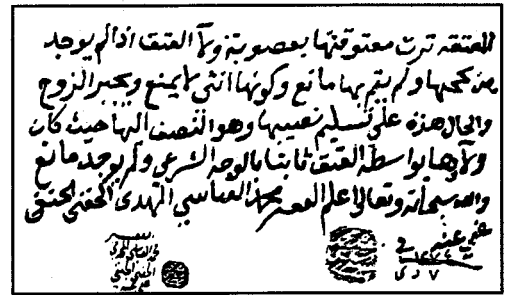 المعتقة ترث معتوقتها بعصوبة ولاء العتق اذا لم يوجد
من يحجبها ولم يقم بها مانع وكونها انثى لا يمنع ويجبر الزوج
والحال هذه على تسليم نصيبها وهو النصف اليها حيث كان
ولاؤها بواسطة العتق ثابتا بالوجه الشرعي ولم يوجد مانع
والله سبحانه وتعالى اعلم الفقير محمد العباسي المهدي الحفني الحنفي
عفي عنه في